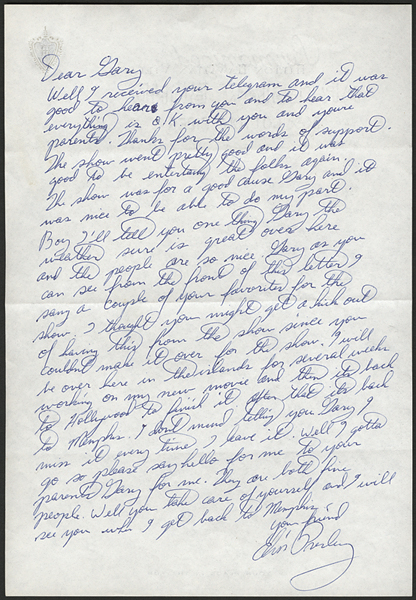 Dear Gary
Well I received your telegram and it was
good to hear from you and to hear that
everything is O K with you and youre
parents. Thanks for the words of support.
The show went pretty good and it was
good to be entertaing the folks again.
The show was for a good cause Gary and it
was nice to be able to do my part.
Boy I'll tell you one thing Gary the
weather sure is great over here
and the people are so nice. Gary as you
can see from the front of this letter I
sang a couple of your favorites for the
show. I thought you might get a kick out
of having this from the show since you
couldnt make it over for the show. I will
be over here in the islands for several weeks
working on my new movie and then its back
to Hollywood to finish it after that its back
to Memphis. I don't mind telling you Gary I
miss it every time I leave it. Well I gotta
go so please say hello for me to your
parents Gary for me. They are both fine
people. Well you take care of yourself and I will
see you when I get back to Memphis
Your friend
Elvis Presley